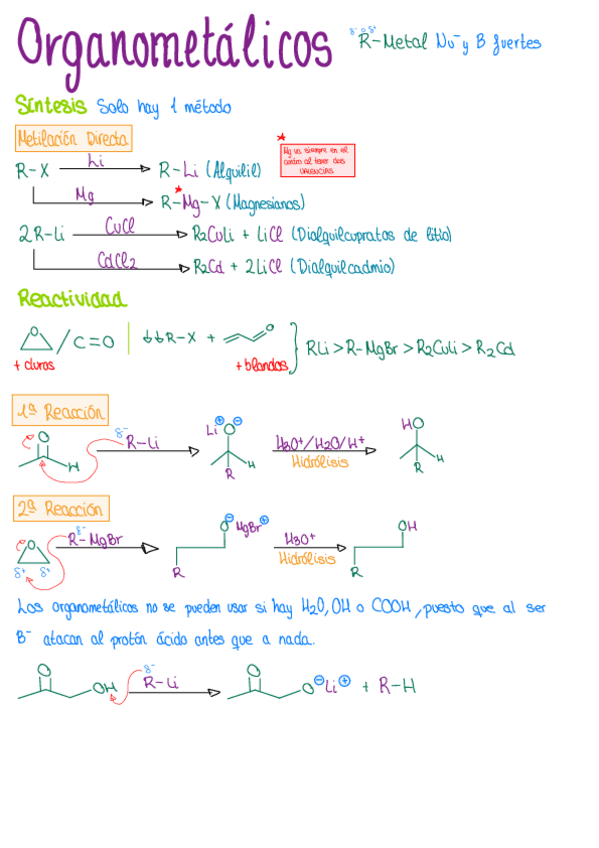 Organometálicos
δ- δ+
R-Metal Nu⁻ y B fuertes
Síntesis Solo hay 1 método
Metilación Directa
R-X Li R-Li (Alquilil)
* Mg va siempre en el
centro al tener dos
valencias
Mg R-Mg-X (Magnesianos)
*
2R-Li CuCl R2CuLi + LiCl (Dialquilcupratos de litio)
CdCl2 R2Cd + 2LiCl (Dialquilcadmio)
Reactividad
O / C=O ↓↓R-X + O } RLi > R-MgBr > R2CuLi > R2Cd
+ duros + blandos
1ª Reacción
O H δ- R-Li Li⊕ O⊖ R H H3O+/H2O/H+ Hidrólisis HO R H
2ª Reacción
O δ+ δ+ δ- R-MgBr O⊖ MgBr⊕ R H3O+ Hidrólisis OH R
Los organometálicos no se pueden usar si hay H2O, OH o COOH, puesto que al ser
B⁻ atacan al protón ácido antes que a nada.
O OH δ- R-Li O O⊖Li⊕ + R-H